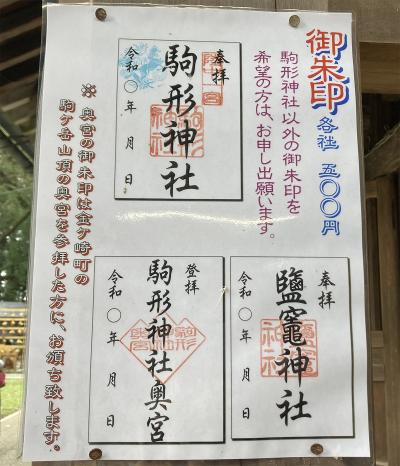 御朱印
各社 五〇〇円
駒形神社以外の御朱印を
希望の方は、お申し出願います。
奉拝
駒形神社
令和〇年 月 日
※ 奥宮の御朱印は金ケ崎町の
駒ケ岳山頂の奥宮を参拝した方に、お頒ち致します。
奉拝
鹽竈神社
令和〇年 月 日
登拝
駒形神社奥宮
令和〇年 月 日